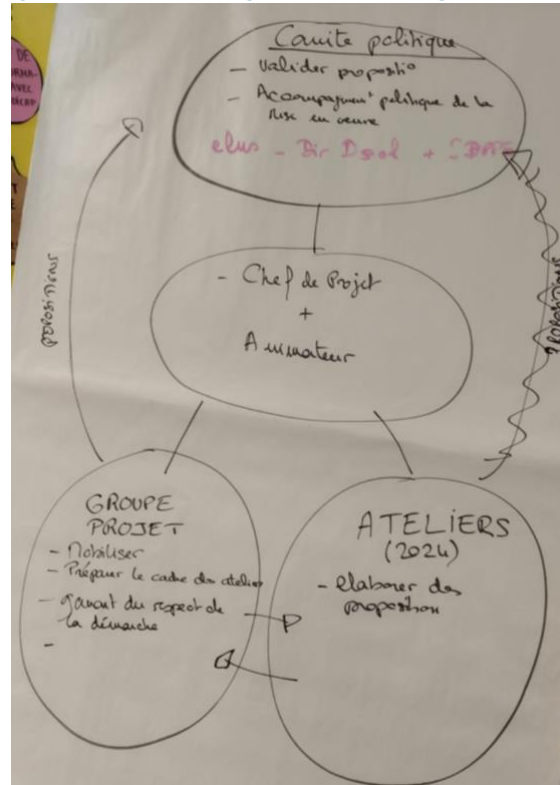 DE
AVEC
Comite politique
- valider propositio
- Accompagnemt politique de la
mise en oeuvre
elus - Dir Dsool +
propositions
PROPOSITIONS
- Chef de Projet
+
Animateur
GROUPE
PROJET
- Mobiliser
- Préparer le cadre des atelier
- garant du respect de
la démarche
-
ATELIERS
(2024)
- élaborer des
proposition